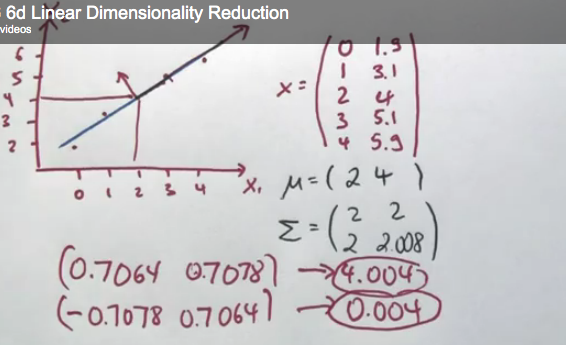 6d Linear Dimensionality Reduction
videos
6
5
4
3
2
0 1 2 3 4 X₁
X =
0 1.9
1 3.1
2 4
3 5.1
4 5.9
μ = ( 2 4 )
Σ = ( 2 2
2 2.008 )
(0.7064 0.7078) → 4.004
(-0.7078 0.7064) → 0.004